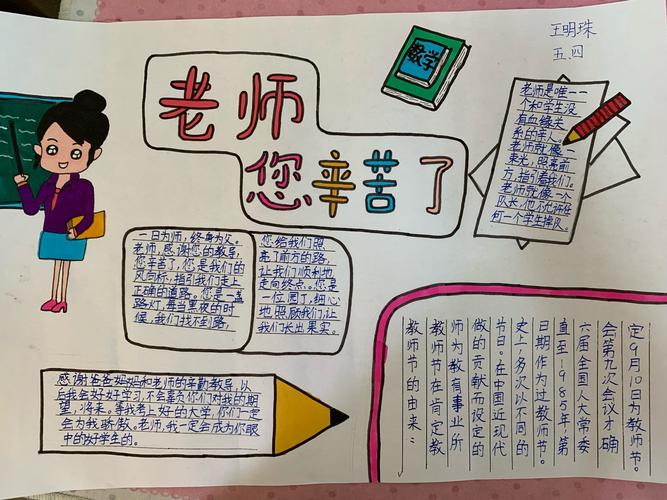 王明珠
五.四
数学
老师
您辛苦了
老师是唯一一
个和学生没
有血缘关
系的亲人。
老师就像一
束光，照亮前
方，指引着我们。
老师就像一个
队长，他不允许任
何一个学生掉队。
一日为师，终身为父。
老师，感谢您的教导，
您辛苦了，您是我们的
风向标，指引我们走上
正确的道路。您是一盏
路灯，每当黑夜的时
候，我们找不到路，
您给我们照
亮了前方的路，
让我们顺利地
走向终点。您是
一位园丁，细心
地照顾我们，让
我们长出果实。
感谢爸爸妈妈和老师的辛勤教导，以
后我会好好学习，不会辜负你们对我的期
望，将来。等我考上好的大学，你们一定
会为我骄傲。老师，我一定会成为你眼
中的好学生的。
教师节的由来：
教师节在肯定教
师为教育事业所
做的贡献而设定的
节日。在中国近现代
史上，多次以不同的
日期作为过教师节。
直至1985年，第
六届全国人大常委
会第九次会议才确
定9月10日为教师节。